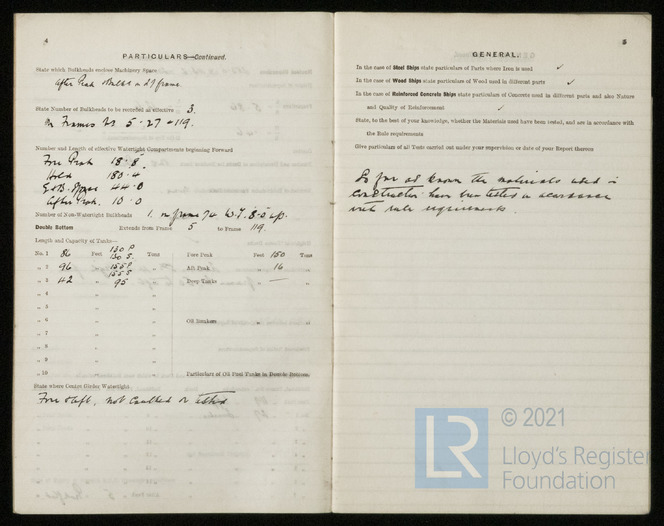 4
PARTICULARS—Continued.
State which Bulkheads enclose Machinery Space
After Peak Bulkhd & 27 frame.
State Number of Bulkheads to be recorded as effective 3.
on Frames No 5 - 27 & 119.
Number and Length of effective Watertight Compartments beginning Forward
Fore Peak 18 - 8
Hold 180 - 4
44 - 0
After Peak. 10 - 0
Number of Non-Watertight Bulkheads 1. on frame 74 W.T. 8-0 up.
Double Bottom Extends from Frame 5 to Frame 119.
Length and Capacity of Tanks—
No. 1 86 Feet 130 P. 130 S. Tons Fore Peak Feet 150 Tons
„ 2 96 „ 155 P. 155 S „ Aft Peak „ 16 „
„ 3 42 „ 95 „ Deep Tanks „ — „
„ 4 „ „ „ „
„ 5 „ „ „ „
„ 6 „ „ Oil Bunkers „ „
„ 7 „ „ „ „
„ 8 „ „ „ „
„ 9 „ „ „ „
„ 10 „ „ Particulars of Oil Fuel Tanks in Double Bottom.
State where Centre Girder Watertight
Fore & aft, not caulked or tested
5
GENERAL.
In the case of Steel Ships state particulars of Parts where Iron is used ✓
In the case of Wood Ships state particulars of Wood used in different parts ✓
In the case of Reinforced Concrete Ships state particulars of Concrete used in different parts and also Nature
and Quality of Reinforcement ✓
State, to the best of your knowledge, whether the Materials used have been tested, and are in accordance with
the Rule requirements
Give particulars of all Tests carried out under your supervision or date of your Report thereon
So far as known the materials used in
construction have been tested in accordance
with rule requirements.
© 2021
LR
Lloyd's Register
Foundation